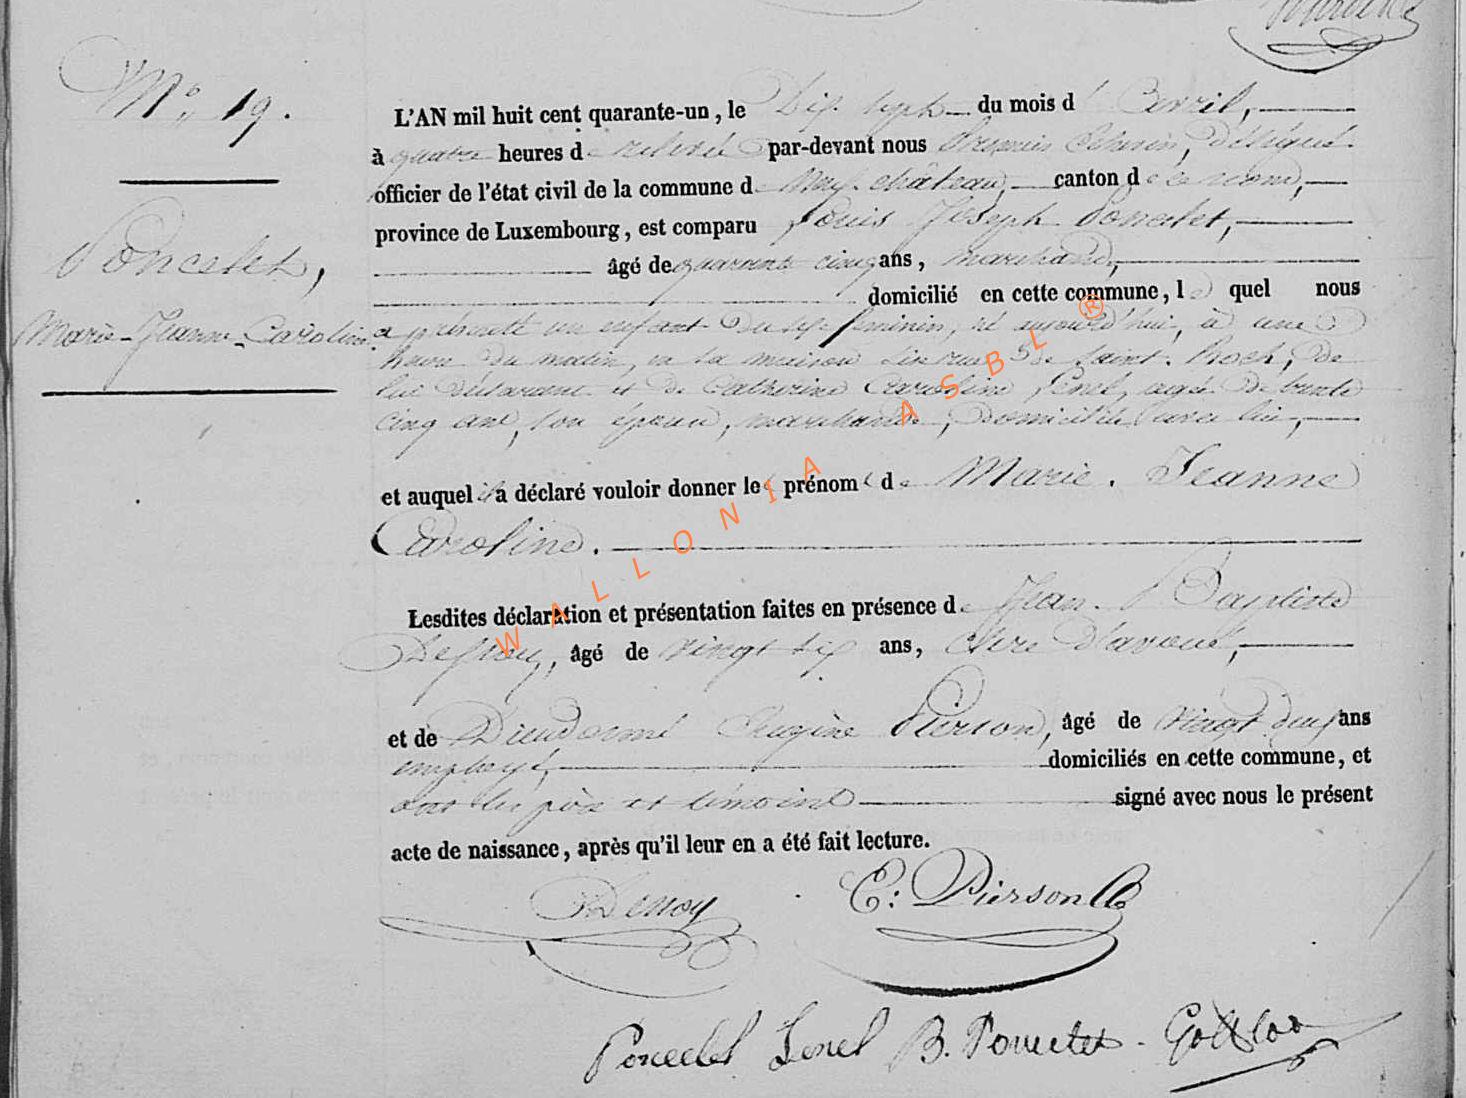 N° 19.
Poncelet,
Marie-Jeanne-Caroline
L'AN mil huit cent quarante-un, le Dix sept du mois d'avril,
à quatre heures de relevé par-devant nous délégué
officier de l'état civil de la commune de Neufchâteau, canton de ce nom,
province de Luxembourg, est comparu Louis Joseph Poncelet,
âgé de quarante cinq ans, marchand,
domicilié en cette commune, lequel nous
a présenté un enfant du sexe féminin, né aujourd'hui, à une
heure du matin, en sa maison sise rue de Saint-Roch, de
lui déclarant et de Catherine Caroline agée de trente
cinq ans, son épouse, marchande, domiciliée avec lui,
et auquel il a déclaré vouloir donner les prénoms de Marie-Jeanne
Caroline.
Lesdites déclaration et présentation faites en présence de Jean-Baptiste
âgé de vingt six ans, clerc d'avoué,
et de Dieudonné Eugène Pierson, âgé de vingt deux ans
employé, domiciliés en cette commune, et
ont les père et témoins signé avec nous le présent
acte de naissance, après qu'il leur en a été fait lecture.
E: Pierson
Poncelet B. Poncelet
WALLONIA ASBL ®